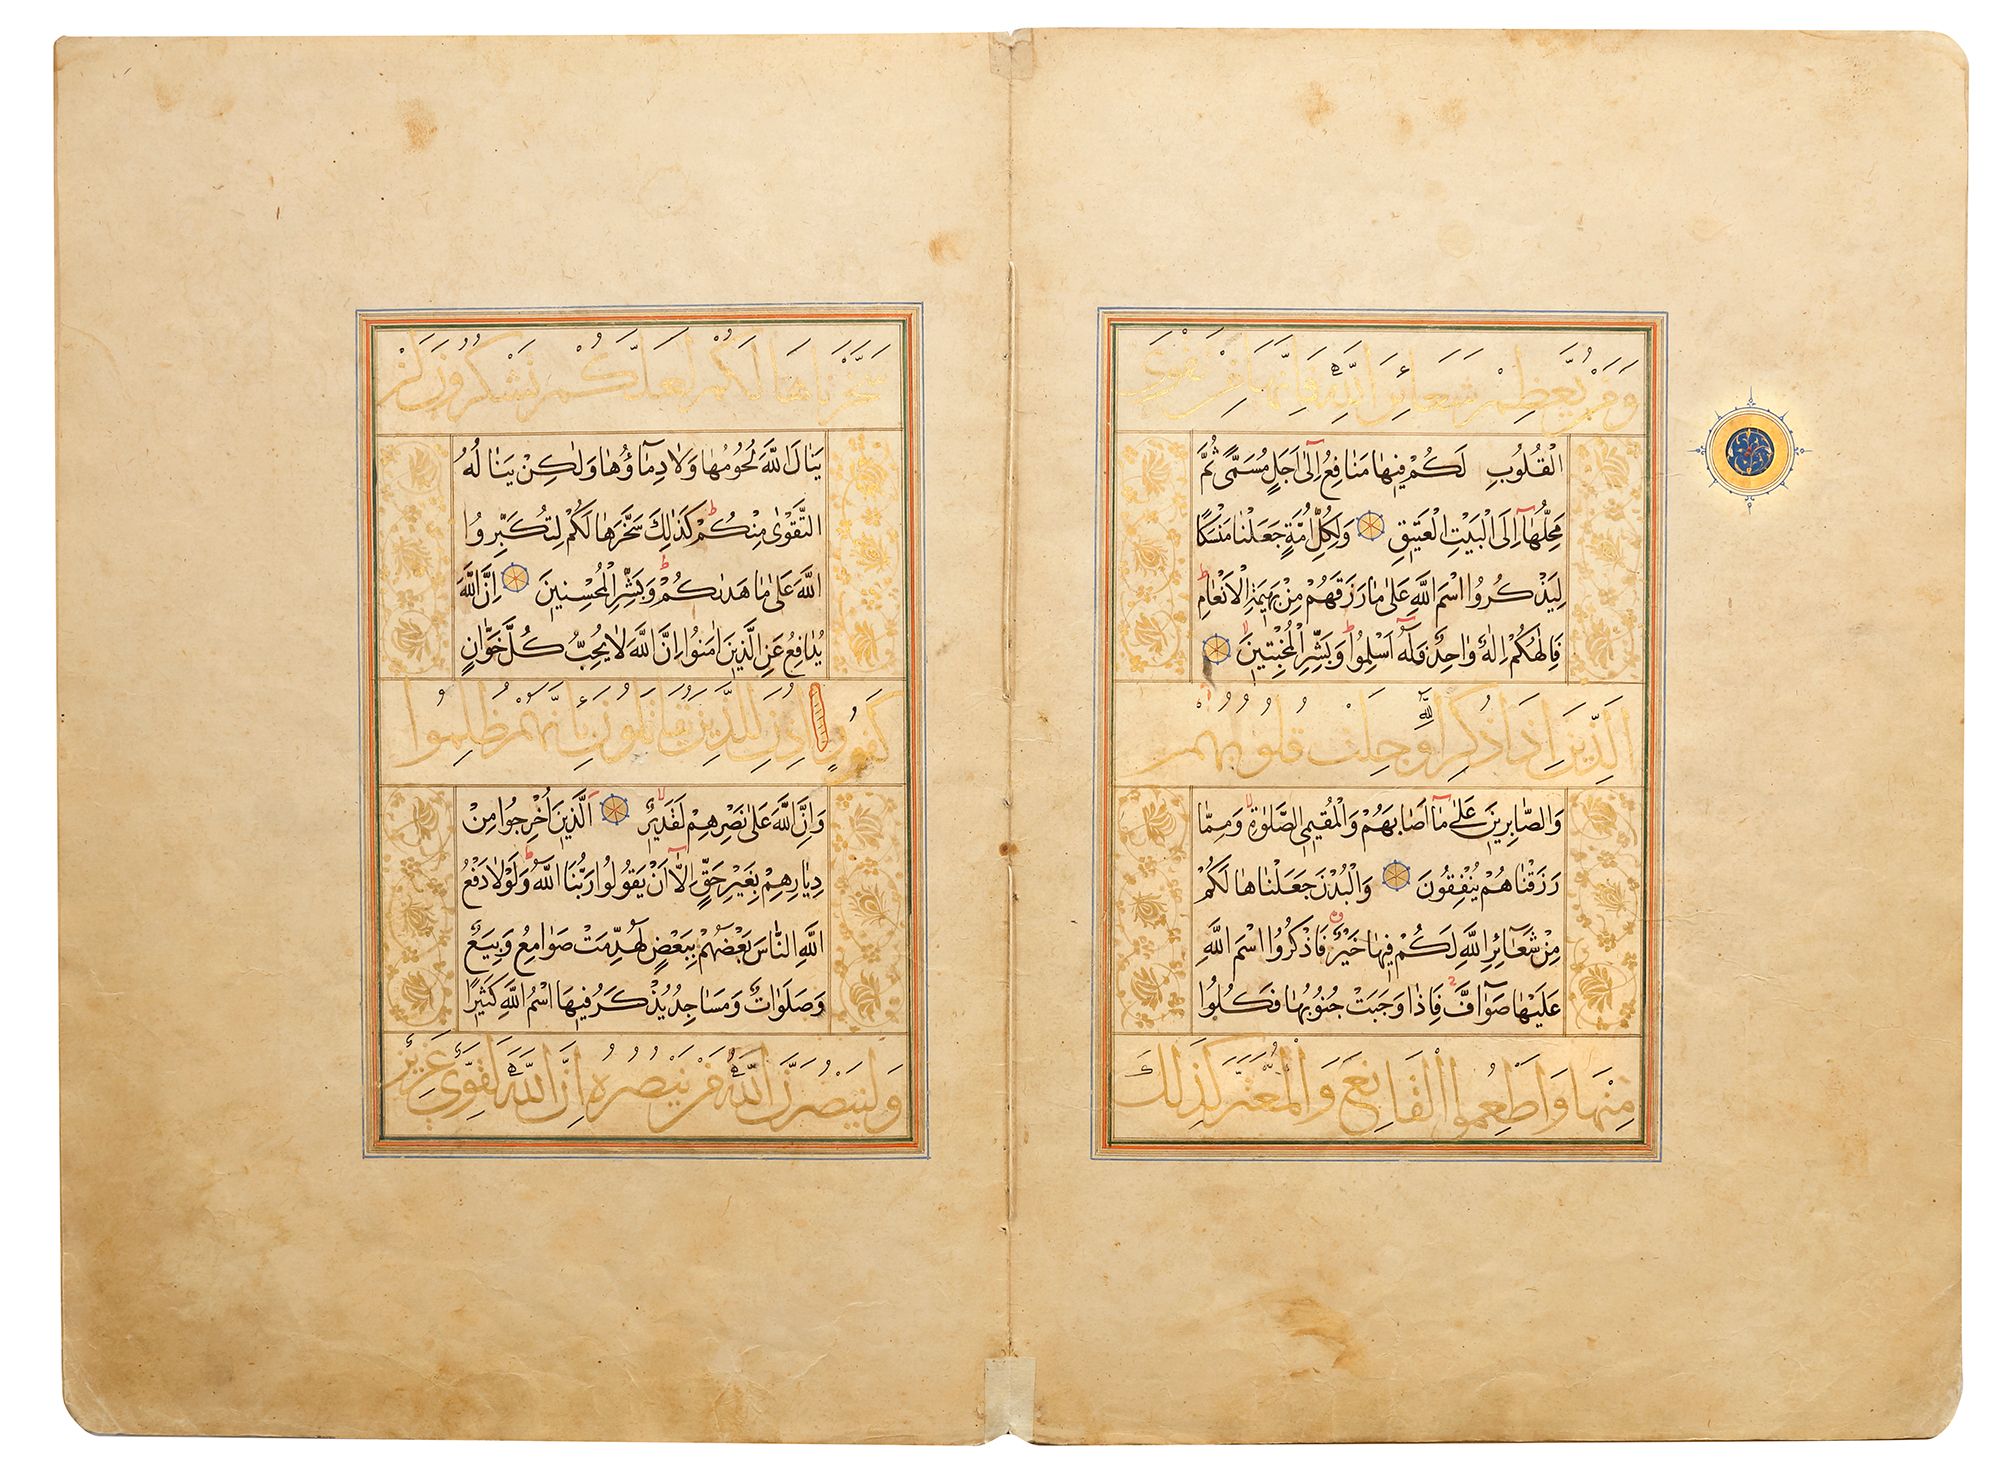 وَمَنْ يُعَظِّمْ شَعَائِرَ اللَّهِ فَإِنَّهَا مِنْ تَقْوَى
الْقُلُوبِ لَكُمْ فِيهَا مَنَافِعُ اِلٰٓى اَجَلٍ مُسَمًّى ثُمَّ
مَحِلُّهَٓا اِلَى الْبَيْتِ الْعَتِيقِ وَلِكُلِّ اُمَّةٍ جَعَلْنَا مَنْسَكًا
لِيَذْكُرُوا اسْمَ اللَّهِ عَلٰى مَا رَزَقَهُمْ مِنْ بَهِيمَةِ الْاَنْعَامِ
فَاِلٰهُكُمْ اِلٰهٌ وَاحِدٌ فَلَهُٓ اَسْلِمُوا وَبَشِّرِ الْمُخْبِتِينَ
الَّذِينَ اِذَا ذُكِرَ اللَّهُ وَجِلَتْ قُلُوبُهُمْ
وَالصَّابِرِينَ عَلٰى مَٓا اَصَابَهُمْ وَالْمُقِيمِى الصَّلٰوةِ وَمِمَّا
رَزَقْنَاهُمْ يُنْفِقُونَ وَالْبُدْنَ جَعَلْنَاهَا لَكُمْ
مِنْ شَعَٓائِرِ اللَّهِ لَكُمْ فِيهَا خَيْرٌ فَاذْكُرُوا اسْمَ اللَّهِ
عَلَيْهَا صَوَٓافَّ فَاِذَا وَجَبَتْ جُنُوبُهَا فَكُلُوا
مِنْهَا وَاَطْعِمُوا الْقَانِعَ وَالْمُعْتَرَّ كَذٰلِكَ
سَخَّرْنَاهَا لَكُمْ لَعَلَّكُمْ تَشْكُرُونَ لَنْ
يَنَالَ اللَّهَ لُحُومُهَا وَلَا دِمَٓاؤُهَا وَلٰكِنْ يَنَالُهُ
التَّقْوٰى مِنْكُمْ كَذٰلِكَ سَخَّرَهَا لَكُمْ لِتُكَبِّرُوا
اللَّهَ عَلٰى مَا هَدٰىكُمْ وَبَشِّرِ الْمُحْسِنِينَ اِنَّ اللَّهَ
يُدَافِعُ عَنِ الَّذِينَ اٰمَنُوا اِنَّ اللَّهَ لَا يُحِبُّ كُلَّ خَوَّانٍ
كَفُورٍ اُذِنَ لِلَّذِينَ يُقَاتَلُونَ بِاَنَّهُمْ ظُلِمُوا
وَاِنَّ اللَّهَ عَلٰى نَصْرِهِمْ لَقَدِيرٌ اَلَّذِينَ اُخْرِجُوا مِنْ
دِيَارِهِمْ بِغَيْرِ حَقٍّ اِلَّٓا اَنْ يَقُولُوا رَبُّنَا اللَّهُ وَلَوْلَا دَفْعُ
اللَّهِ النَّاسَ بَعْضَهُمْ بِبَعْضٍ لَهُدِّمَتْ صَوَامِعُ وَبِيَعٌ
وَصَلَوَاتٌ وَمَسَاجِدُ يُذْكَرُ فِيهَا اسْمُ اللَّهِ كَثِيرًا
وَلَيَنْصُرَنَّ اللَّهُ مَنْ يَنْصُرُهُ اِنَّ اللَّهَ لَقَوِيٌّ عَزِيزٌ